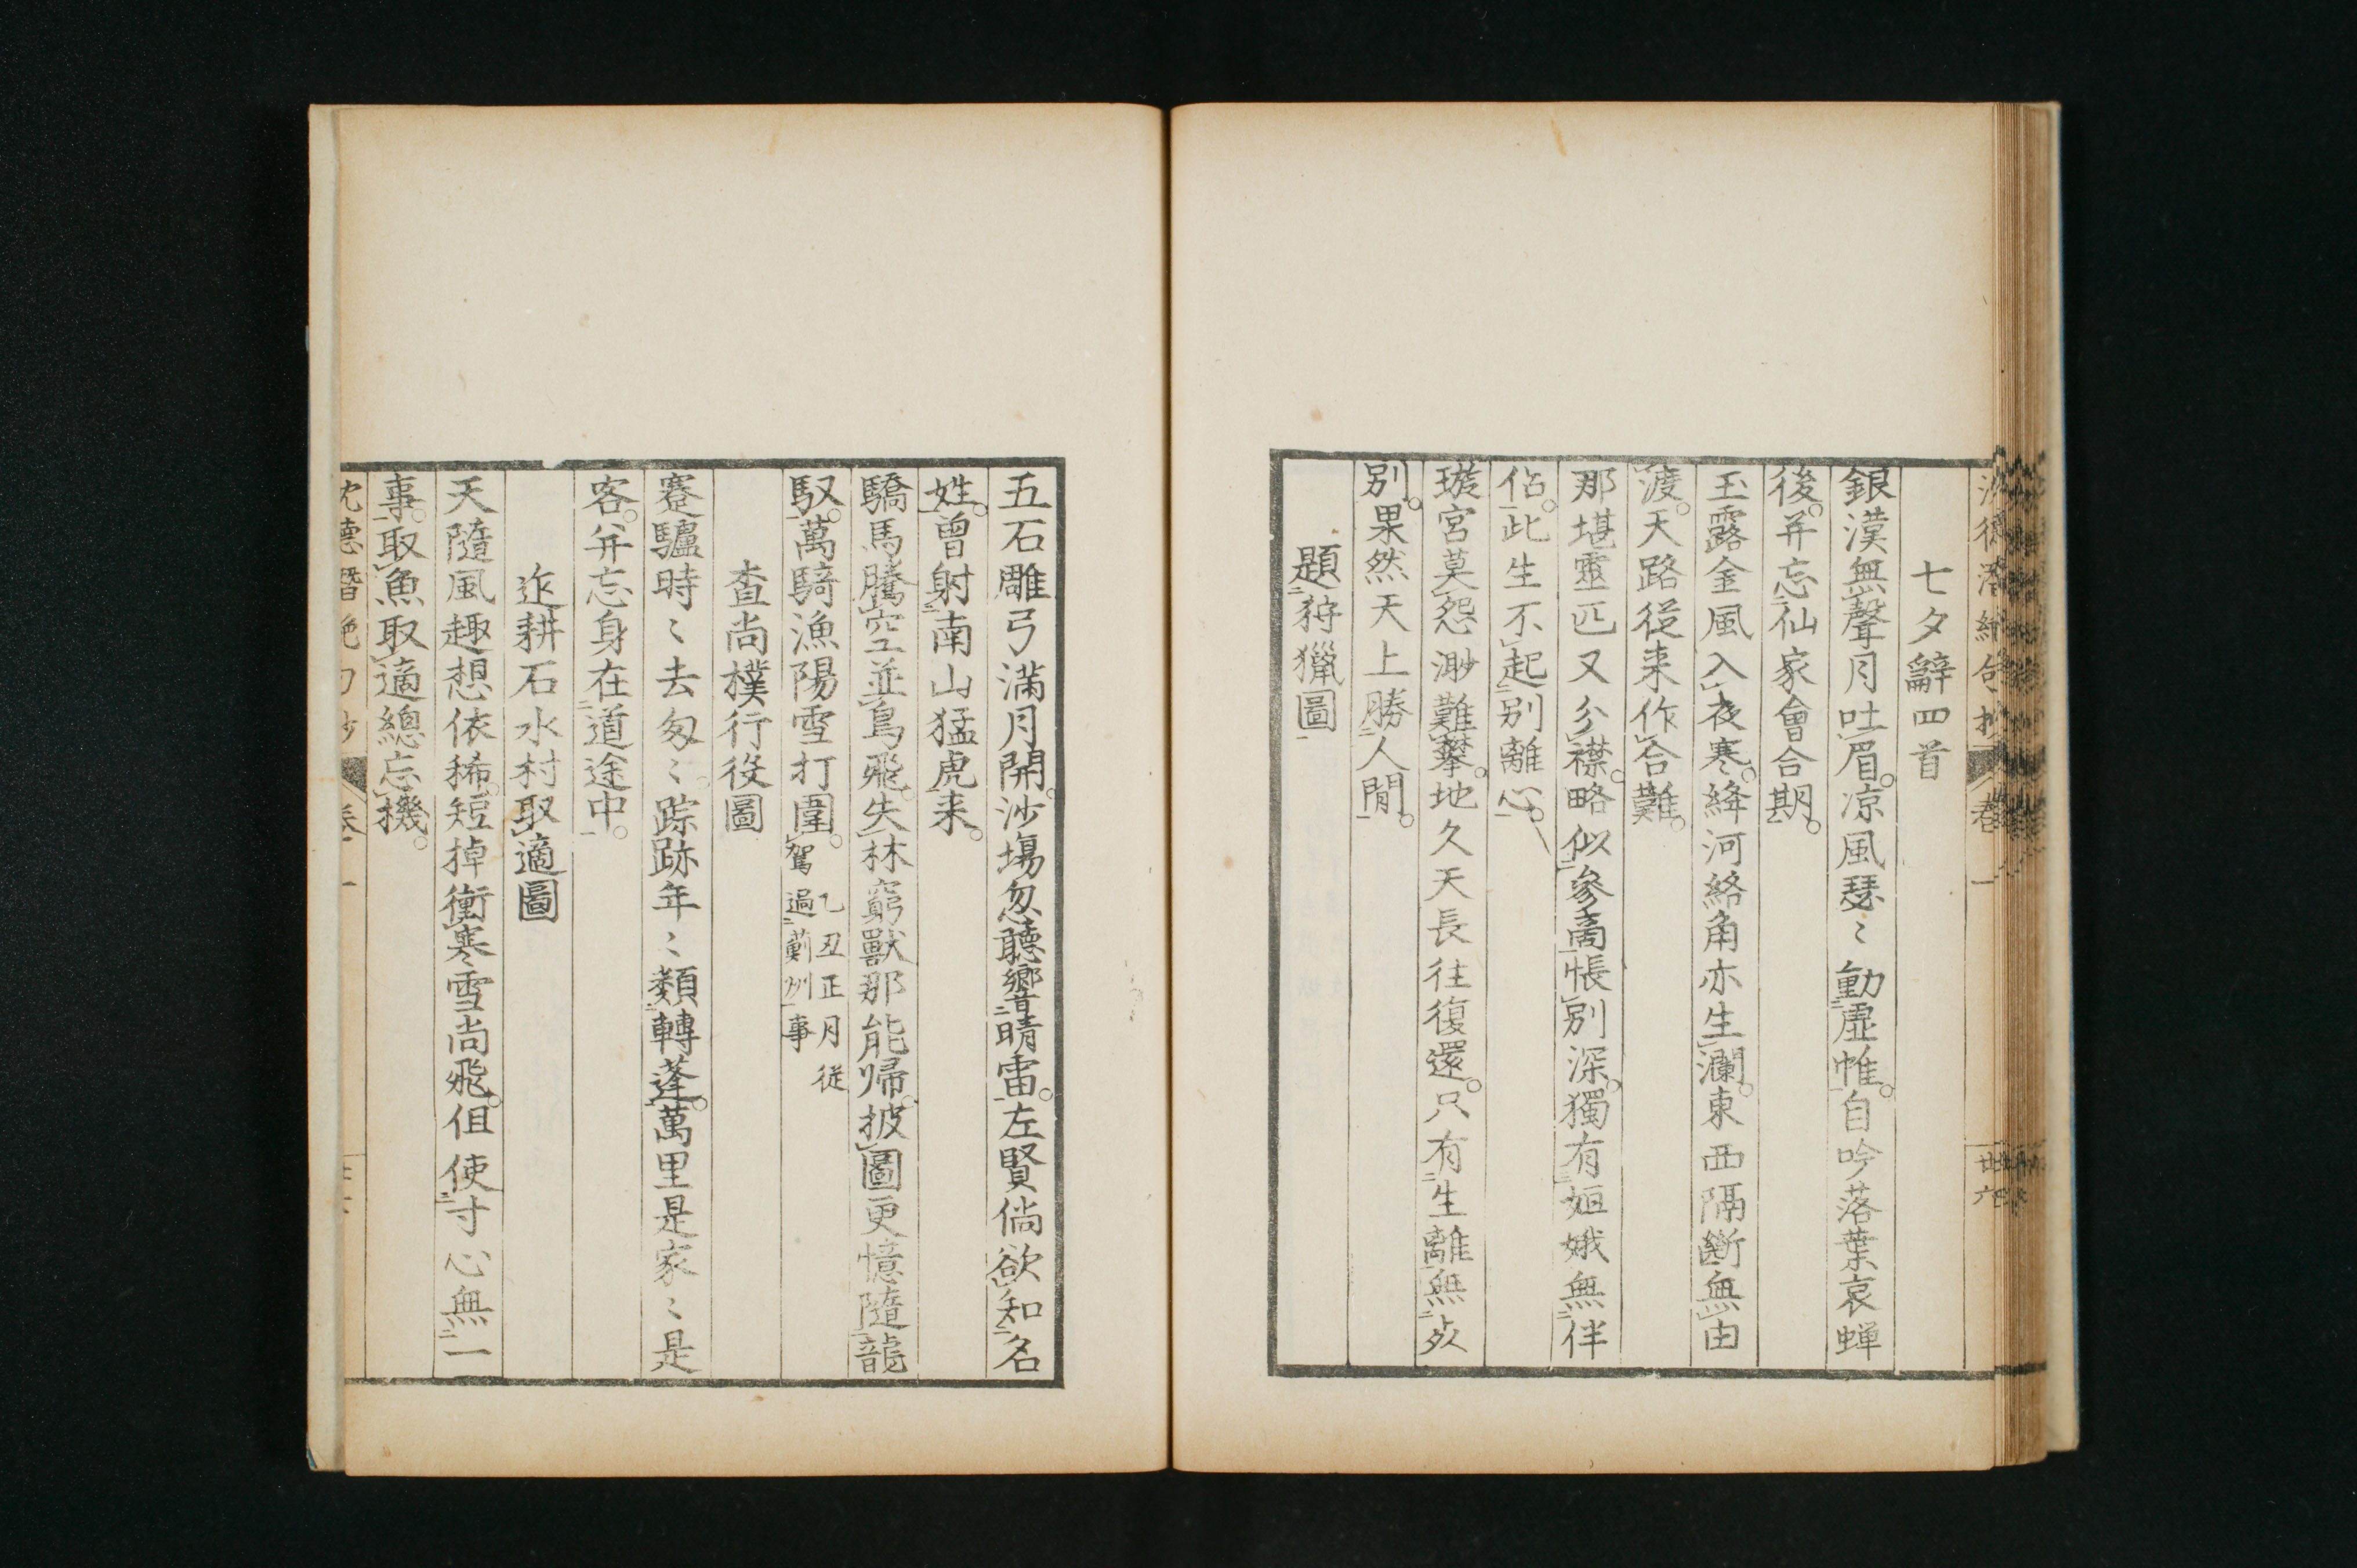 七夕辭四首
銀漢無聲月吐眉。涼風瑟〻動虛帷。自吟落葉哀蟬
後。并忘仙家會合期。
玉露金風入夜寒。絳河絡角亦生瀾。東西隔斷無由
渡。天路從来作合難。
那堪靈匹又分襟。略似參商悵別深。獨有姮娥無伴
侶。此生不起別離心。
璇宮莫怨渺難攀。地久天長往復還。只有生離無死
別。果然天上勝人間。
題狩獵圖
五石雕弓滿月開。沙場忽聽響晴雷。左賢倘欲知名
姓。曾射南山猛虎来。
驕馬騰空並鳥飛。失林窮獸那能歸。披圖更憶隨龍
馭。萬騎漁陽雪打圍。乙丑正月從
駕過薊州事
查尚樸行役圖
蹇驢時〻去匆〻。踪跡年〻類轉蓬。萬里是家〻是
客。并忘身在道途中。
迮耕石水村取適圖
天隨風趣想依稀。短掉衝寒雪尚飛。但使寸心無一
事。取魚取適總忘機。
沈德潛絶句抄 卷一